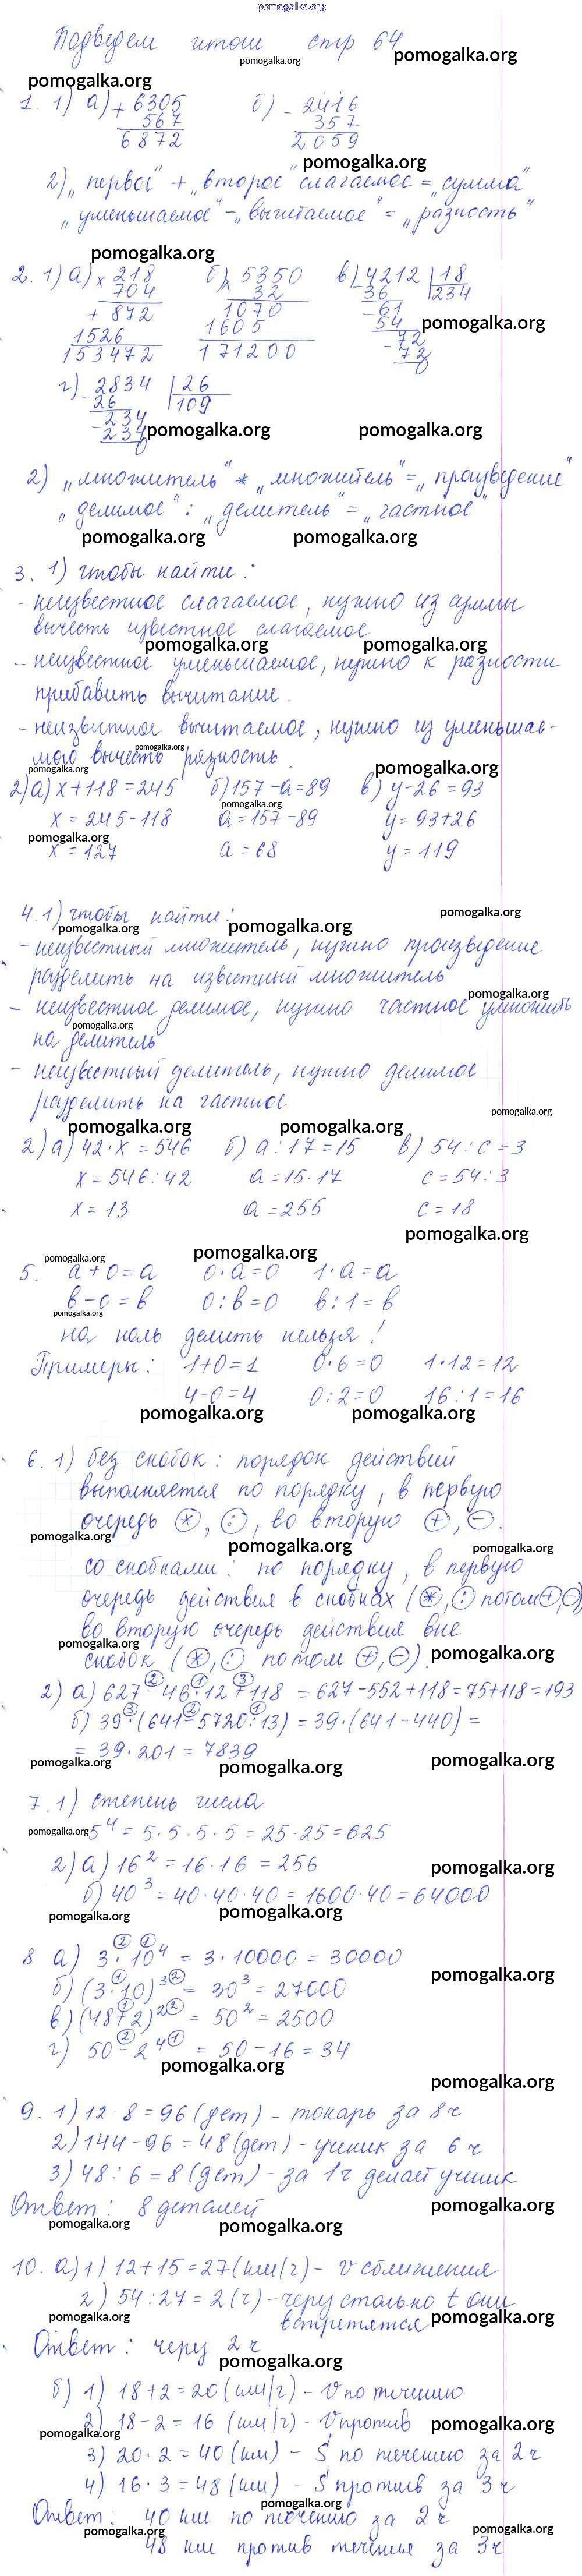 pomogalka.org
Подведем итоги стр 64
pomogalka.org pomogalka.org
pomogalka.org
1. 1) а) + 6305 б) - 2416
567 357
6872 2059
pomogalka.org
2) „первое" + „второе" слагаемое = „сумма"
„уменьшаемое" - „вычитаемое" = „разность"
pomogalka.org
2. 1) а) × 218 б) × 5350 в) 4212 | 18
704 32 36 234
+ 872 1070 - 61
1526 1605 54
153472 171200 - 72
72
0
pomogalka.org
г) - 2834 | 26
26 109
- 234
234
0
pomogalka.org pomogalka.org
2) „множитель" * „множитель" = „произведение"
„делимое" : „делитель" = „частное"
pomogalka.org pomogalka.org
3. 1) чтобы найти:
- неизвестное слагаемое, нужно из суммы
вычесть известное слагаемое
pomogalka.org pomogalka.org
- неизвестное уменьшаемое, нужно к разности
прибавить вычитание.
- неизвестное вычитаемое, нужно из уменьшае-
мого вычесть разность.
pomogalka.org pomogalka.org pomogalka.org
2) а) x + 118 = 245 б) 157 - a = 89 в) y - 26 = 93
pomogalka.org
x = 245 - 118 a = 157 - 89 y = 93 + 26
pomogalka.org
x = 127 a = 68 y = 119
4. 1) чтобы найти:
pomogalka.org pomogalka.org pomogalka.org
- неизвестный множитель, нужно произведение
разделить на известный множитель
pomogalka.org
- неизвестное делимое, нужно частное умножить
pomogalka.org
на делитель
- неизвестный делитель, нужно делимое
разделить на частное
pomogalka.org pomogalka.org pomogalka.org
2) а) 42 · x = 546 б) a : 17 = 15 в) 54 : c = 3
x = 546 : 42 a = 15 · 17 c = 54 : 3
x = 13 a = 255 c = 18
pomogalka.org
pomogalka.org pomogalka.org
5. a + 0 = a 0 · a = 0 1 · a = a
b - 0 = b 0 : b = 0 b : 1 = b
pomogalka.org
на ноль делить нельзя!
Примеры: 1 + 0 = 1 0 · 6 = 0 1 · 12 = 12
4 - 0 = 4 0 : 2 = 0 16 : 1 = 16
pomogalka.org pomogalka.org
6. 1) без скобок: порядок действий
выполняется по порядку, в первую
очередь *, :, во вторую +, -.
pomogalka.org pomogalka.org pomogalka.org
со скобками: по порядку, в первую
очередь действия в скобках (*, : потом +, -)
во вторую очередь действия вне
pomogalka.org pomogalka.org
скобок (*, : потом +, -).
2 1 3
2) а) 627 - 46 · 12 + 118 = 627 - 552 + 118 = 75 + 118 = 193
3 2 1
б) 39 · (641 - 5720 : 13) = 39 · (641 - 440) =
= 39 · 201 = 7839
pomogalka.org pomogalka.org pomogalka.org
7. 1) степень числа
pomogalka.org
5⁴ = 5 · 5 · 5 · 5 = 25 · 25 = 625
2) а) 16² = 16 · 16 = 256
pomogalka.org
б) 40³ = 40 · 40 · 40 = 1600 · 40 = 64000
pomogalka.org pomogalka.org
2 1
8 а) 3 · 10⁴ = 3 · 10000 = 30000
pomogalka.org
1 2
б) (3 · 10)³ = 30³ = 27000
1 2
в) (48 + 2)² = 50² = 2500
2 1
г) 50 - 2⁴ = 50 - 16 = 34
pomogalka.org
pomogalka.org
9. 1) 12 · 8 = 96 (дет) - токарь за 8 ч
2) 144 - 96 = 48 (дет) - ученик за 6 ч
3) 48 : 6 = 8 (дет) - за 1 ч делает ученик
Ответ: 8 деталей
pomogalka.org pomogalka.org pomogalka.org
10. а) 1) 12 + 15 = 27 (км/ч) - v сближения
2) 54 : 27 = 2 (ч) - через столько t они
встретятся
pomogalka.org pomogalka.org
Ответ: через 2 ч
pomogalka.org
б) 1) 18 + 2 = 20 (км/ч) - v по течению
2) 18 - 2 = 16 (км/ч) - v против
pomogalka.org pomogalka.org
3) 20 · 2 = 40 (км) - S по течению за 2 ч
4) 16 · 3 = 48 (км) - S против за 3 ч
pomogalka.org
Ответ: 40 км по течению за 2 ч
pomogalka.org pomogalka.org
48 км против течения за 3 ч